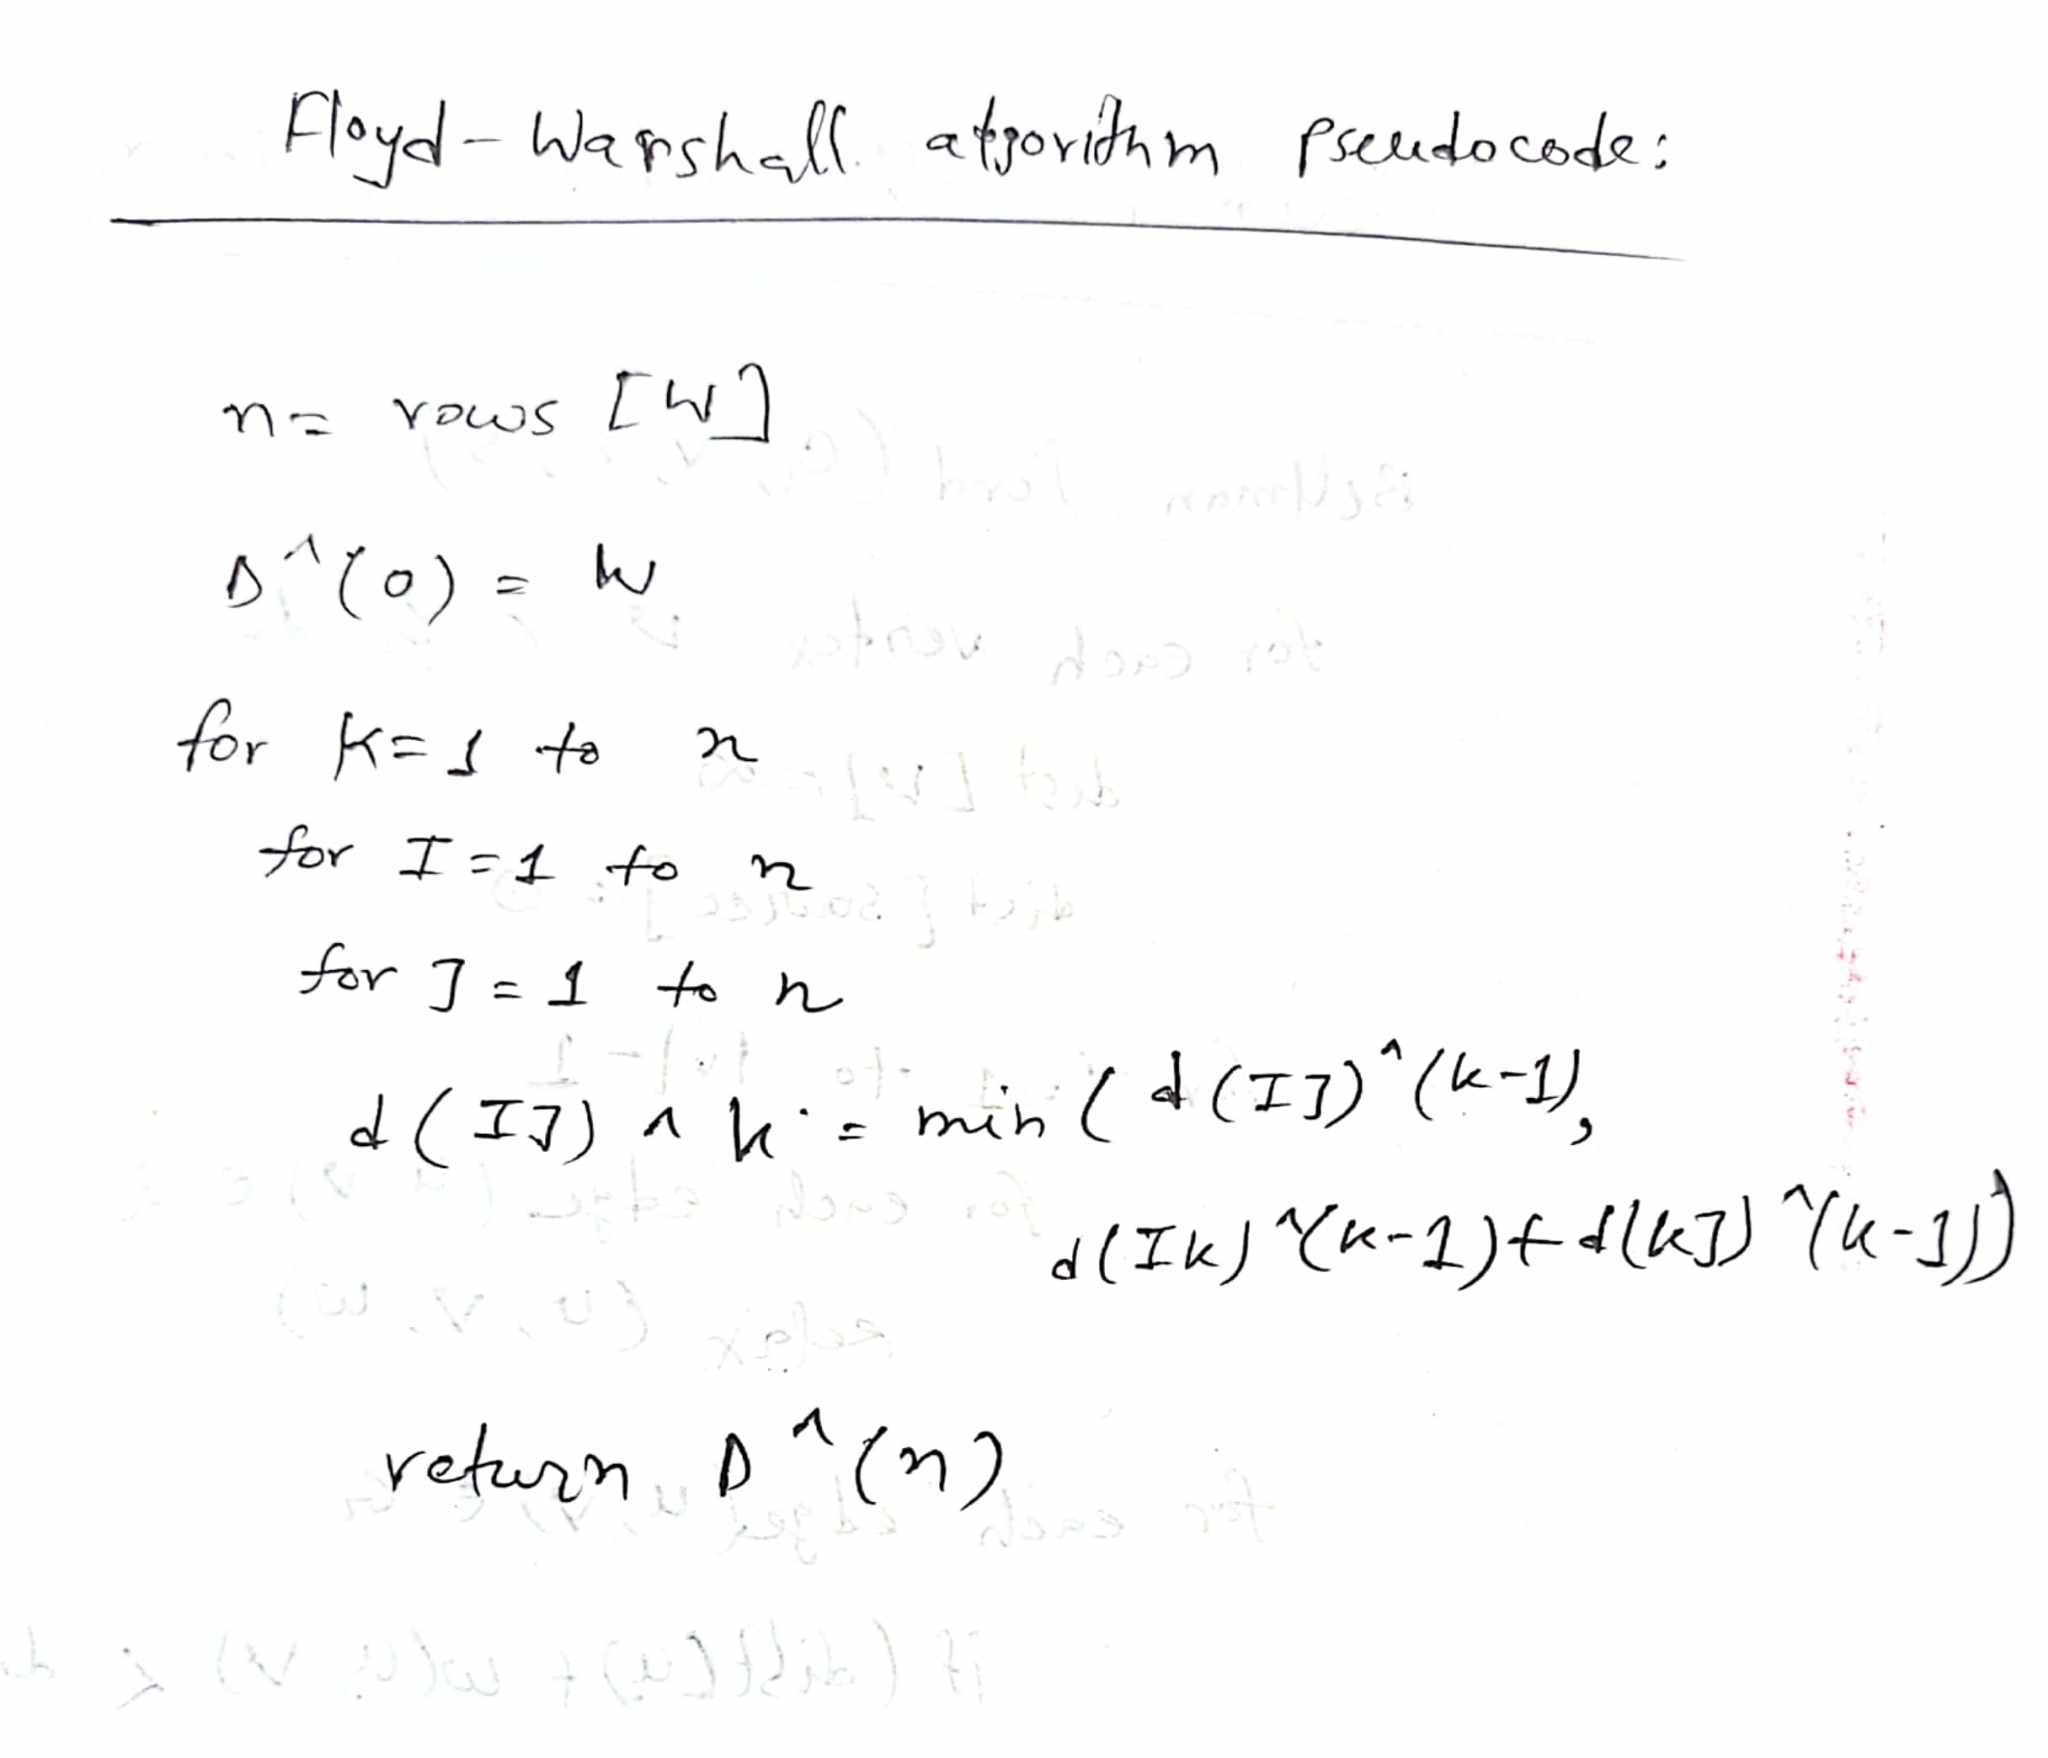 Floyd-Warshall algorithm pseudocode:
n= rows [W]
D^(0) = W
for K=1 to n
for I=1 to n
for J=1 to n
d(IJ)^k = min(d(IJ)^(k-1),
d(Ik)^(k-1)+d(kJ)^(k-1))
return D^(n)